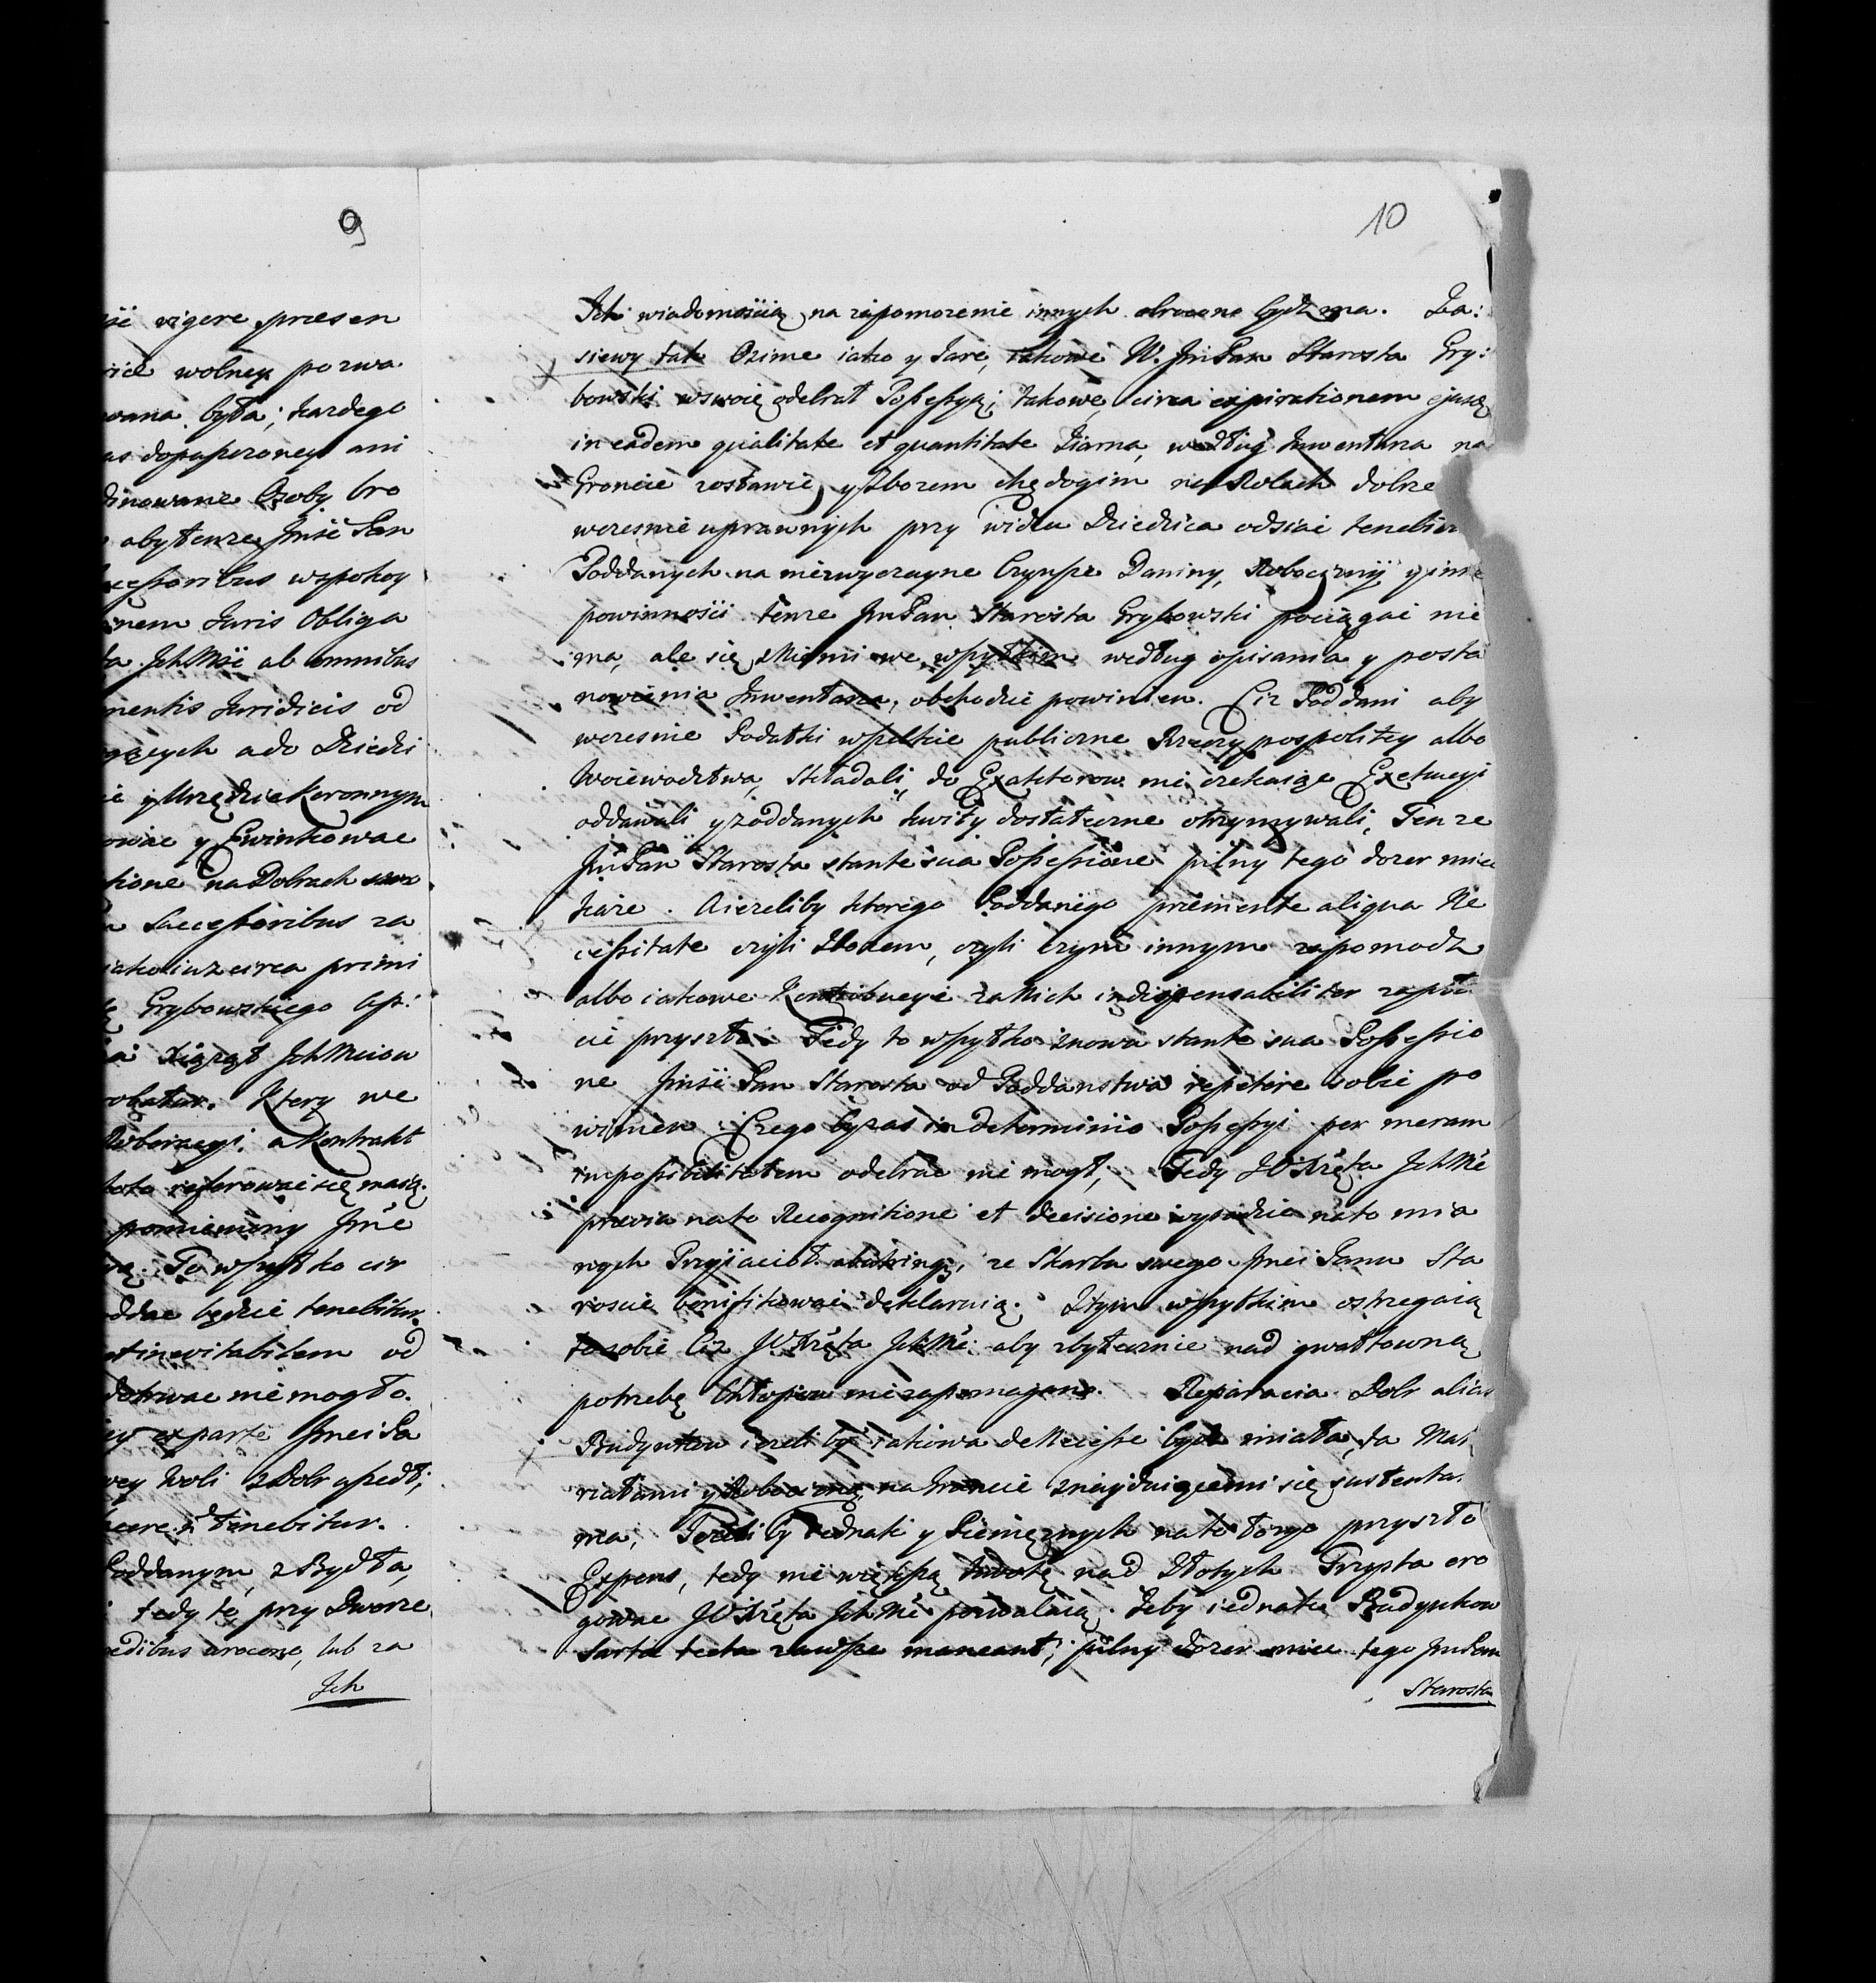 9
ści vigere præsen
wolney pozwa
wana była; kazdego
as dopuszczoney ani
dinowane Osoby bro
abytenze Jmść Pan
ccessoribus wspokoy
nem Juris Obliga
ta JchMść ab omnibus
mentis Juridicis od
ących ado Dziedzi
y Urzędzie Koronnym
owac y Ewinkowac
tione na Dobrach swo
Successoribus za
iako iuz circa primi
Grybowskiego Osp:
Xiążąt JchMciow
robatur. Ktory we
a Kontrakt
referowac się maią.
pomieniony Jmć
To wszystko cir
oddac będzie tenebitur
inevitabilem od
dotrwac niemogło.
ex parte Jmci Pa
wey woli z Dobr zszedł;
cere tenebitur.
Poddanym, z Bydła,
tedy te przy Dworze
edibus wrocone, lub za
Ich
10
Ich wiadomością na zapomozenie innych obrocone bydz ma. Za:
siewy tak Ozime iako y Jare, iakowe W. JmPan Starosta Gry:
bowski wswoię odebrał Possessyą; takowe, circa expirationem ejusq
in eadem qualitate et quantitate Ziarna, według Inwentarza na
Groncie zostawić, y Zbozem chędogim na Rolach dobrze
wczesnie uprawnych przy widzu Dziedzica odsiać tenebitur
Poddanych na niezwyczayne Czynsze Daniny, Robocizny y inne
powinności tenze JmPan Starosta Grybowski pociągać nie
ma, ale się zNiemi we wszytkim według opisania y posta
nowienia Inwentarza, obchodzić powinien. Ciz Poddani aby
wczesnie Podatki wszelkie publiczne Rzeczypospolitey albo
Woiewodztwa, składali, do Exaktorow nie czekaiąc Exekucyi
oddawali y zoddanych kwity dostateczne otrzymywali, Tenze
JmPan Starosta stante sua Possessione pilny tego dozor miec
kaze. A iezeliby ktorego Poddanego præmente aliqua Ne
cessitate czyli Zbozem, czyli czym innym zapomodz
albo iakowe Kontribucyie zaNich indispensabiliter zapła
cić przyszło: Tedy to wszytko znowu stante sua Possessio
ne Jmść Pan Starosta od Poddanstwa repetere sobie po
winien. Czego by zas in determinio Possessyi per meram
impossibilitatem odebrac nie mogł, Tedy JO Xżęta JchMć
prævia nato Recognitione et decisione wyzadzie nato mia
nych Przyiacioł ze Skarbu swego Jmci Panu Sta
roscie bonifikowac deklaruią. Ztym wszytkim ostrzegaią
to sobie Ciz JO Xżęta JchMć aby zbytecznie nad gwałtowną
potrzebę Chłopow niezapomagano. Reparacia Dobr alias
Budynkow iezeli by iakowa de Necesse bydz miała, ta Mat
riałami y Robocizną na Groncie znayduiącemi się sustenta
ma; Iezeli by iednak y Pieniężnych na to tego przyszło
Expens, tedy nie większą kwotę nad Złotych Trzysta ero
gowac JO Xżęta JchMć pozwalaią. Zeby iednak Budynkow
Sarta tecta zawsze maneant, pilny dozor miec tego JmPan
Starosta